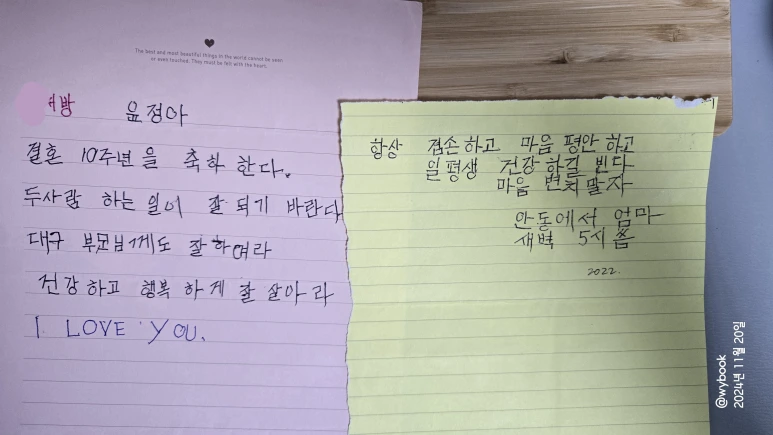 The best and most beautiful things in the world cannot be seen
or even touched. They must be felt with the heart.
서방 윤정아
결혼 10주년을 축하 한다.
두사람 하는 일이 잘 되기 바란다
대구 부모님께도 잘 하여라
건강하고 행복 하게 잘 살아라
I LOVE YOU.
항상 겸손하고 마음 평안하고
일평생 건강 하길 빈다
마음 변치말자
안동에서 엄마
새벽 5시 쯤
2022.
@wybook
2024년 11월 20일